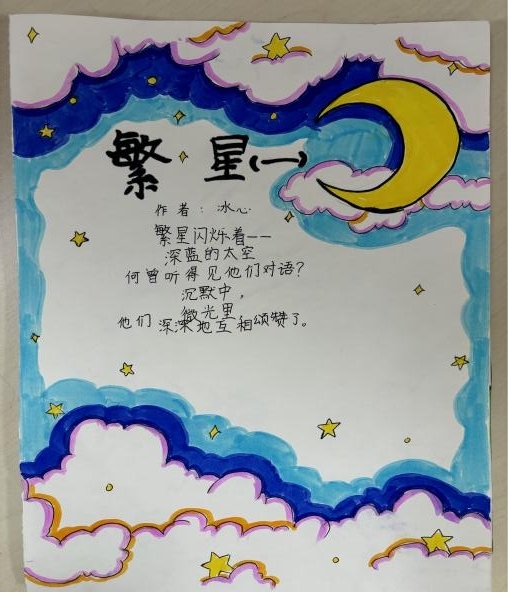 繁星(一)
作者：冰心
繁星闪烁着——
深蓝的太空
何曾听得见他们对语？
沉默中，
微光里
他们深深地互相颂赞了。